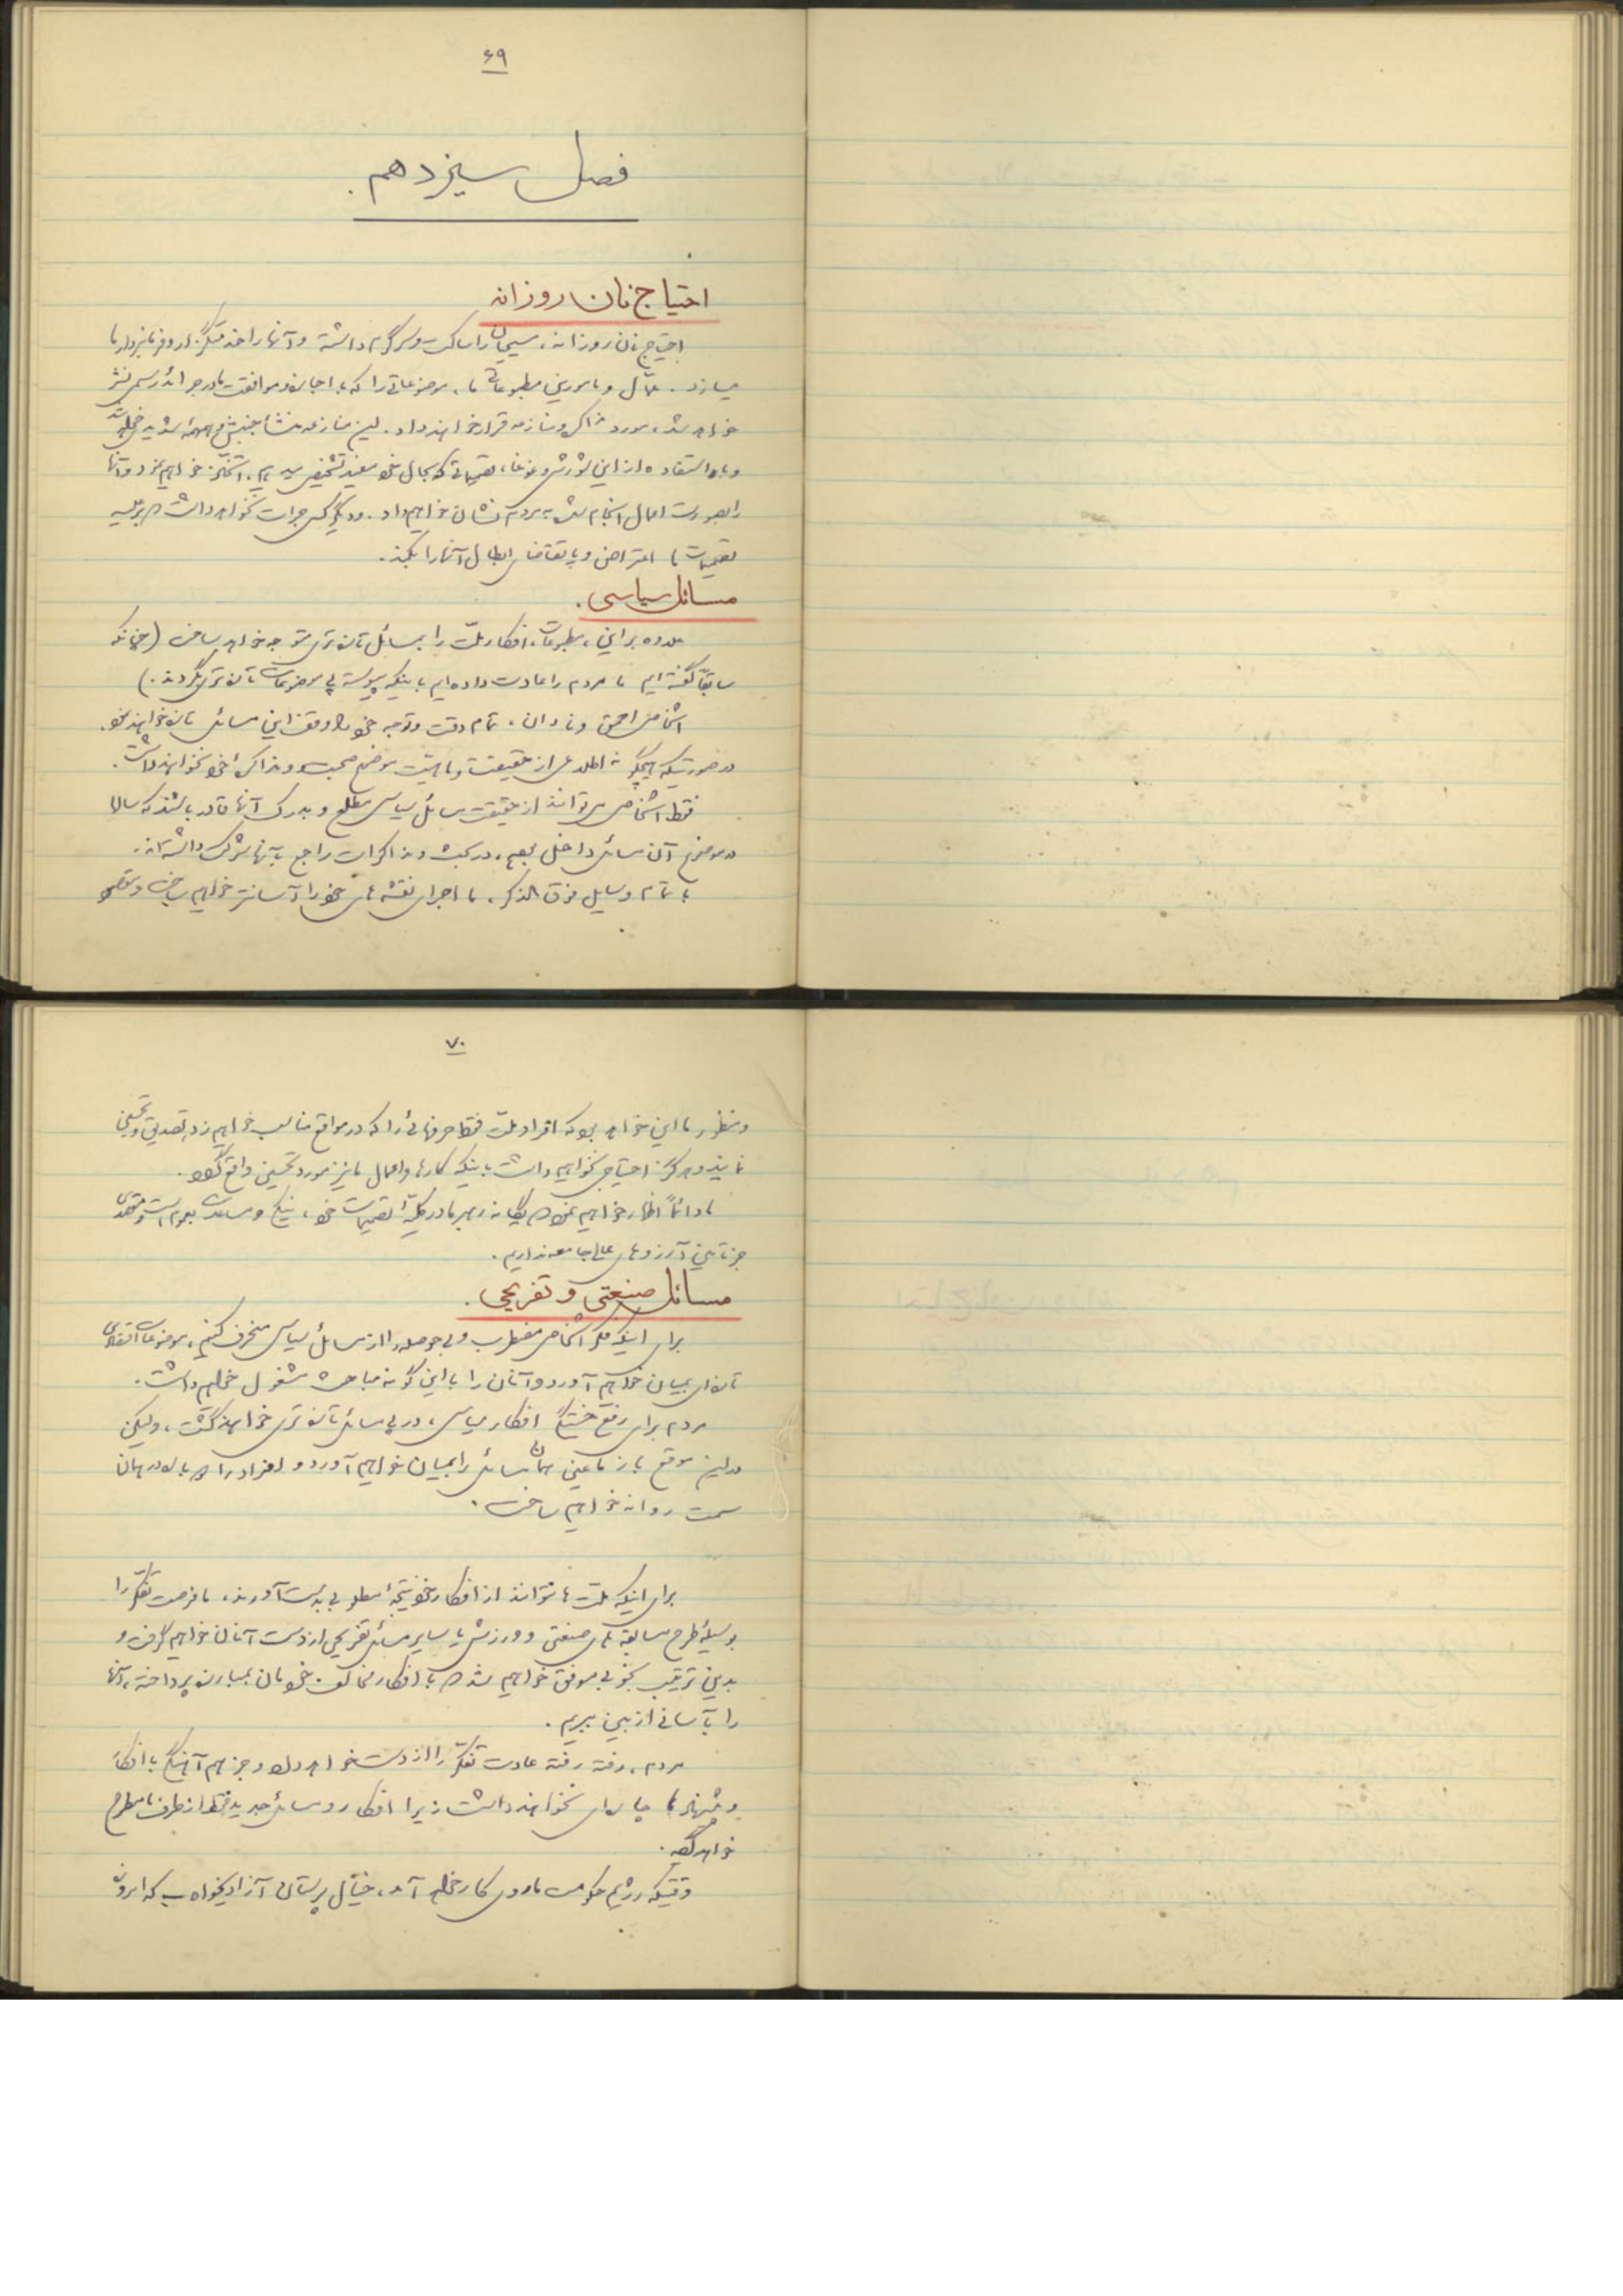 ۶۹
فصل سیزدهم.
احتیاج نان روزانه
احتیاج نان روزانه، مسیحیان را ساکت و سرگرم داشته و آنها را خدمتگزار و فرمانبردار ما
میسازد. عمّال و مامورین مطبوعاتی ما، موضوعاتی را که با اجازه و موافقت ما در جرائد رسمی نشر
خواهد شد، مورد مذاکره و منازعه قرار خواهند داد. این منازعه منشأ جنبش و همهمه شدید خواهد شد
و با استفاده از این شورش و غوغا، تصمیماتی که بحال خود مفید تشخیص میدهیم، اتخاذ خواهیم نمود و آنها
را بصورت اعمال انجام شده بمردم نشان خواهیم داد. و دیگر کسی جرات نخواهد داشت که بر علیه
تصمیمات ما اعتراض و یا تقاضای ابطال آنها را بکند.
مسائل سیاسی.
علاوه بر این، مطبوعات، افکار ملت را بمسائل تازه‌تری متوجه خواهد ساخت (چنانکه
سابقاً گفته ایم ما مردم را عادت داده ایم باینکه پیوسته پی موضوعات تازه‌تری بگردند.)
اشخاص احمق و نادان، تمام دقت و توجه خود را وقف این مسائل تازه خواهند نمود.
در صورتیکه هیچگونه اطلاعی از حقیقت و ماهیّت موضوع صحبت و مذاکرهٔ خود نخواهند داشت.
فقط اشخاصی میتوانند از حقیقت مسائل سیاسی مطلع و بدرک آنها قادر باشند که سالها
در موضوع آن مسائل داخل بوده، در بحث و مذاکرات راجع بآنها شرکت داشته‌اند.
با تمام وسایل فوق الذکر، ما اجرای نقشه های خود را آسانتر خواهیم ساخت و مقصود
۷۰
و منظور ما این خواهد بود که افراد ملت فقط حرفهائی را که در مواقع مناسب خواهیم زد، تصدیق و تحسین
نمایند و هرگز احتیاجی نخواهیم داشت باینکه کارها و اعمال ما نیز مورد تحسین واقع گردد.
ما دائماً اظهار خواهیم نمود که یگانه رهبر ما در کلیّهٔ تصمیمات خود، نیکی و مساعدت بعموم است و مقصدی
جز تامین آرزوهای عالی جامعه نداریم.
مسائل صنعتی و تفریحی.
برای اینکه فکر اشخاص مضطرب و بی حوصله را از مسائل سیاسی منحرف کنیم، موضوعات اقتصادی
تازه‌ای بمیان خواهیم آورد و آنان را با این گونه مباحث مشغول خواهیم داشت.
مردم برای رفع خستگی افکار سیاسی، در پی مسائل تازه تری خواهند گشت، ولیکن
در این موقع باز ما عین همان مسائل را بمیان خواهیم آورد و افراد را که بالا در همان
سمت روانه خواهیم ساخت.
برای اینکه ملت ها نتوانند از افکار خود نتیجهٔ مطلوبی بدست آورند، ما فرصت تفکر را
بوسیلهٔ طرح مسابقه های صنعتی و ورزشی یا سایر مسائل تفریحی از دست آنان خواهیم گرفت و
بدین ترتیب بخوبی موفق خواهیم شد که با افکار مخالف خودمان بمبارزه پرداخته، آنها
را بآسانی از بین ببریم.
مردم، رفته رفته عادت تفکّر را از دست خواهد داد و جز هم آهنگی با افکار
و پیشنهاد ما چاره‌ای نخواهند داشت زیرا افکار و مسائل جدید فقط از طرف ما مطرح
خواهد گردید.
وقتیکه رژیم حکومت ما روی کار خواهد آمد، خیال پرستان آزادیخواه که امروزه